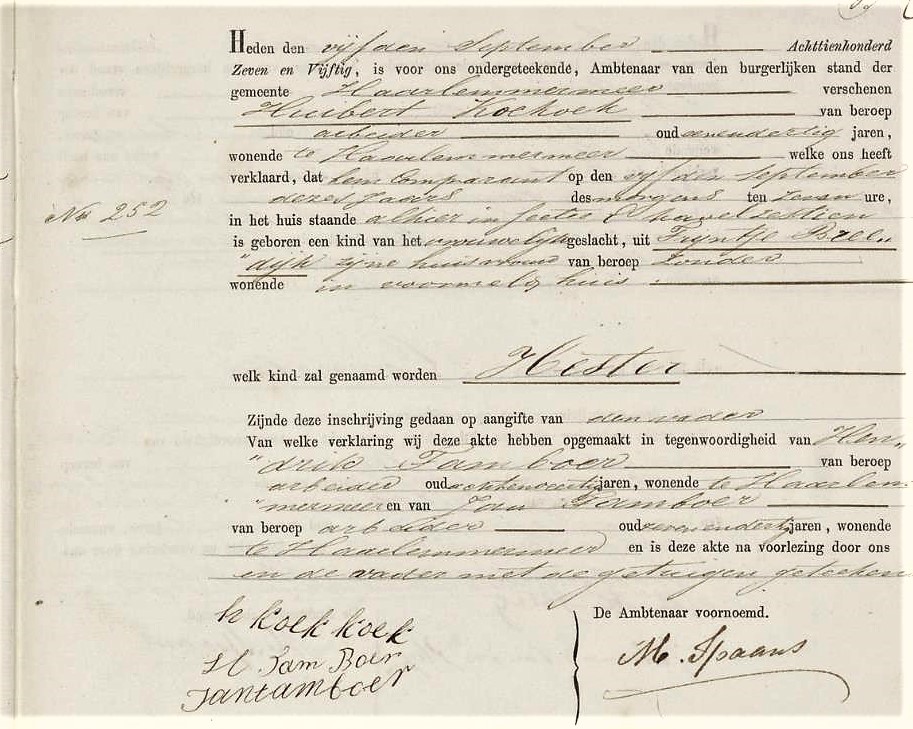 Heden den vijfden September Achttienhonderd
Zeven en Vijftig, is voor ons ondergeteekende, Ambtenaar van den burgerlijken stand der
gemeente Haarlemmermeer verschenen
Huibert Koekoek van beroep
arbeider oud zevenendertig jaren,
wonende te Haarlemmermeer welke ons heeft
verklaard, dat hem Comparant op den vijfden September
dezes jaars des morgens ten zeven ure,
No 252
in het huis staande alhier in sectie kavel zestien
is geboren een kind van het vrouwelijk geslacht, uit Tryntje Bree„
„dijk zijne huisvrouw van beroep zonder
wonende in voormelig huis.
welk kind zal genaamd worden Hester
Zijnde deze inschrijving gedaan op aangifte van den vader
Van welke verklaring wij deze akte hebben opgemaakt in tegenwoordigheid van Hen„
„drik Tamboer van beroep
arbeider oud achtenveertig jaren, wonende te Haarlem„
„mermeer en van Jan Tamboer
van beroep arbeider oud zevenendertig jaren, wonende
te Haarlemmermeer en is deze akte na voorlezing door ons
en de vader met de getuigen geteekend
De Ambtenaar voornoemd.
h koek koek
H Tam Boer
Jantamboer
M. Spaans